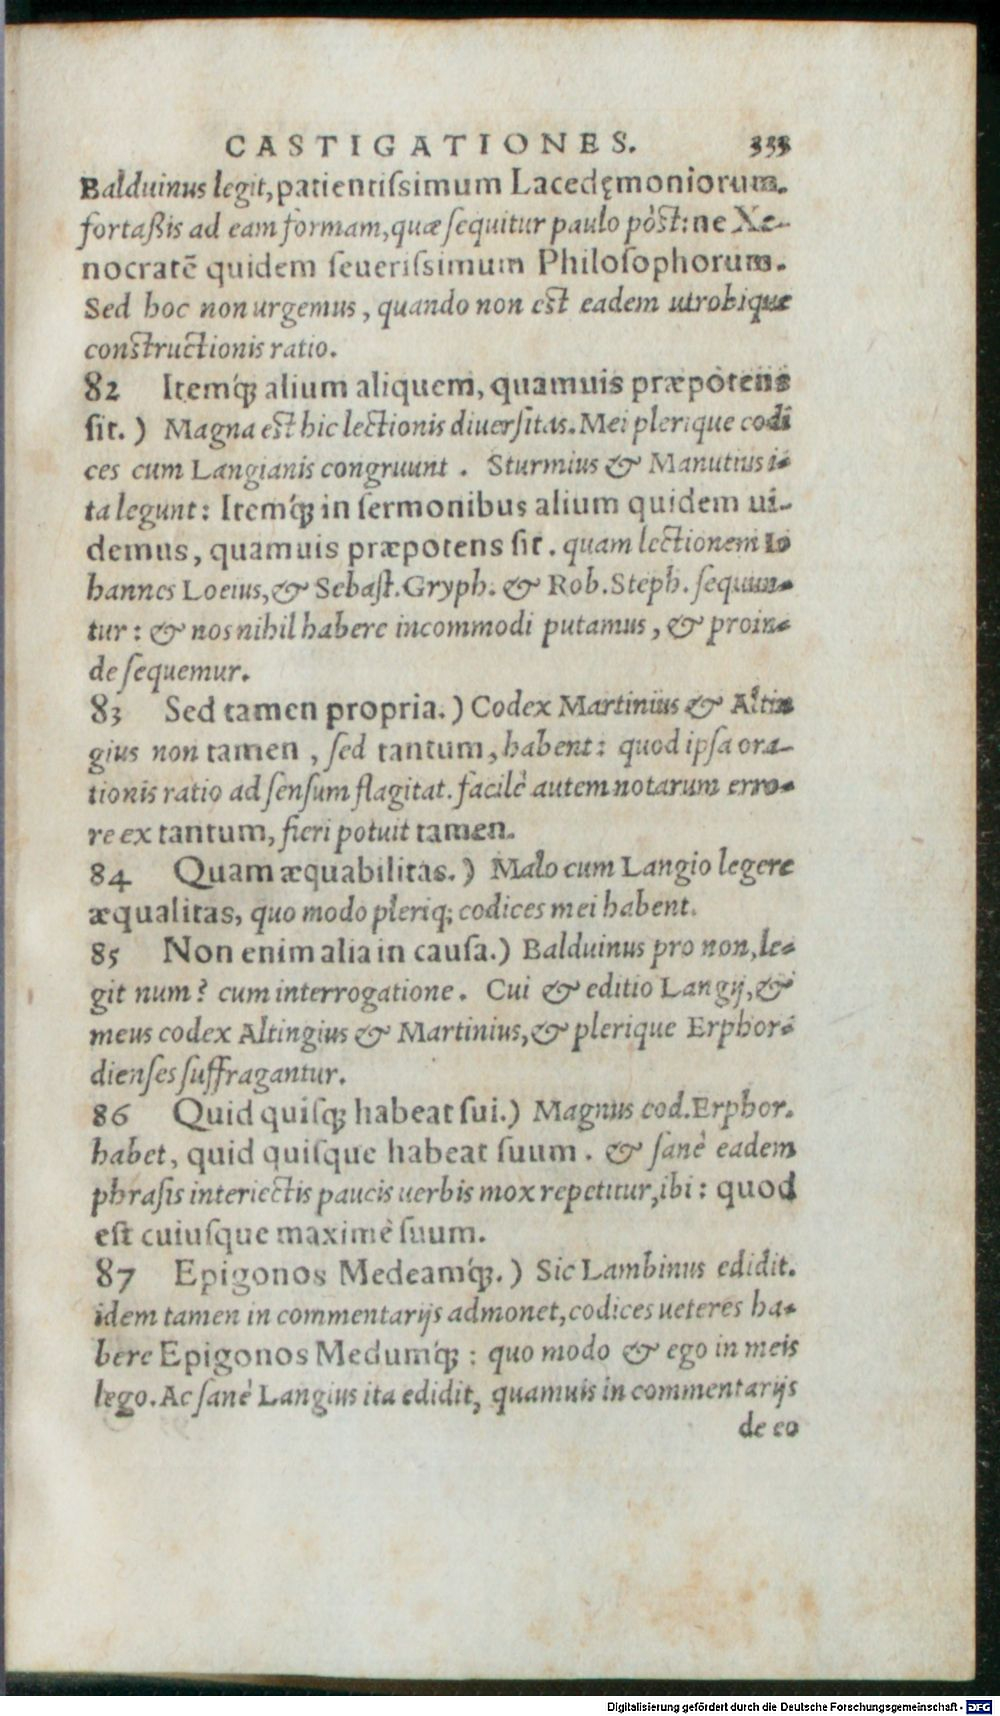 CASTIGATIONES. 333
Balduinus legit, patientiſsimum Lacedęmoniorum.
fortaßis ad eam formam, quæ ſequitur paulo pòst: ne Xe-
nocratē quidem ſeueriſsimum Philoſophorum.
Sed hoc non urgemus, quando non est eadem utrobique
constructionis ratio.
82 Itemq́; alium aliquem, quamuis præpotens
ſit.) Magna est hic lectionis diuerſitas. Mei plerique codi
ces cum Langianis congruunt. Sturmius & Manutius i-
ta legunt: Itemq́; in ſermonibus alium quidem ui-
demus, quamuis præpotens ſit. quam lectionem Io
hannes Loeius, & Sebaſt. Gryph. & Rob. Steph. ſequun-
tur: & nos nihil habere incommodi putamus, & proin-
de ſequemur.
83 Sed tamen propria.) Codex Martinius & Altin
gius non tamen, ſed tantum, habent: quod ipſa ora-
tionis ratio ad ſenſum flagitat. facilè autem notarum erro-
re ex tantum, fieri potuit tamen.
84 Quam æquabilitas.) Malo cum Langio legere
æqualitas, quo modo pleriq; codices mei habent.
85 Non enim alia in cauſa.) Balduinus pro non, le-
git num? cum interrogatione. Cui & editio Langij, &
meus codex Altingius & Martinius, & plerique Erphor-
dienſes ſuffragantur.
86 Quid quiſq; habeat ſui.) Magnus cod. Erphor.
habet, quid quiſque habeat ſuum. & ſanè eadem
phraſis interiectis paucis uerbis mox repetitur, ibi: quod
eſt cuiuſque maximè ſuum.
87 Epigonos Medeamq́;.) Sic Lambinus edidit.
idem tamen in commentarijs admonet, codices ueteres ha-
bere Epigonos Medumq́;: quo modo & ego in meis
lego. Ac ſanè Langius ita edidit, quamuis in commentarijs
de eo
Digitalisierung gefördert durch die Deutsche Forschungsgemeinschaft - DFG